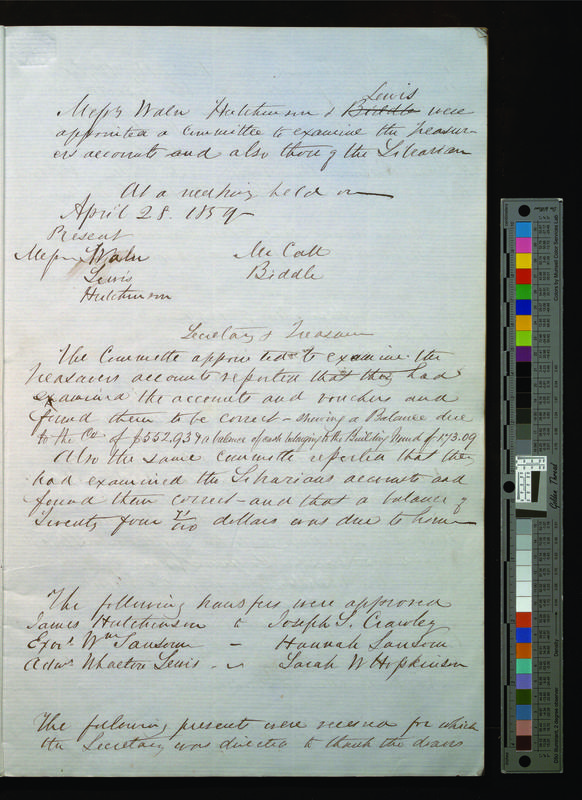 Lewis
Messrs Waln Hutchinson & Biddle were
appointed a Committee to examine the Treasur-
ers accounts and also those of the Librarian
At a meeting held on
April 28. 1859
Present
Messrs Waln Mc Call
Lewis Biddle
Hutchinson
Secretary & Treasurer
The Committee appointed to examine the
Treasurers accounts reported that they had
examined the accounts and vouchers and
found them to be correct - showing a Balance due
to the Co of $552.93 & a balance of cash belonging to the Building Fund of 173.09
Also the same committee reported that they
had examined the Librarians accounts and
found them correct - and that a balance of
Twenty four 71/100 dollars was due to him
The following transfers were approved
James Hutchinson to Joseph S. Crawley
Exor. Wm Sansom - Hannah Sansom
Admr Wharton Lewis - Sarah W Hopkinson
The following presents were received for which
the Secretary was directed to thank the donors